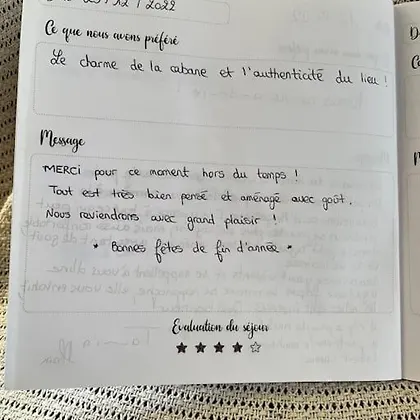 / 12 / 2022
Ce que nous avons préféré
Le charme de la cabane et l'authenticité du lieu !
Message
MERCI pour ce moment hors du temps !
Tout est très bien pensé et aménagé avec goût.
Nous reviendrons avec grand plaisir !
* Bonnes fêtes de fin d'année *
Evaluation du séjour
★ ★ ★ ★ ☆